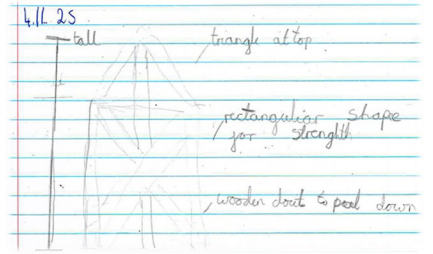 4.11.25
tall
triangle at top
rectangular shape
for strenghth
wooden to down